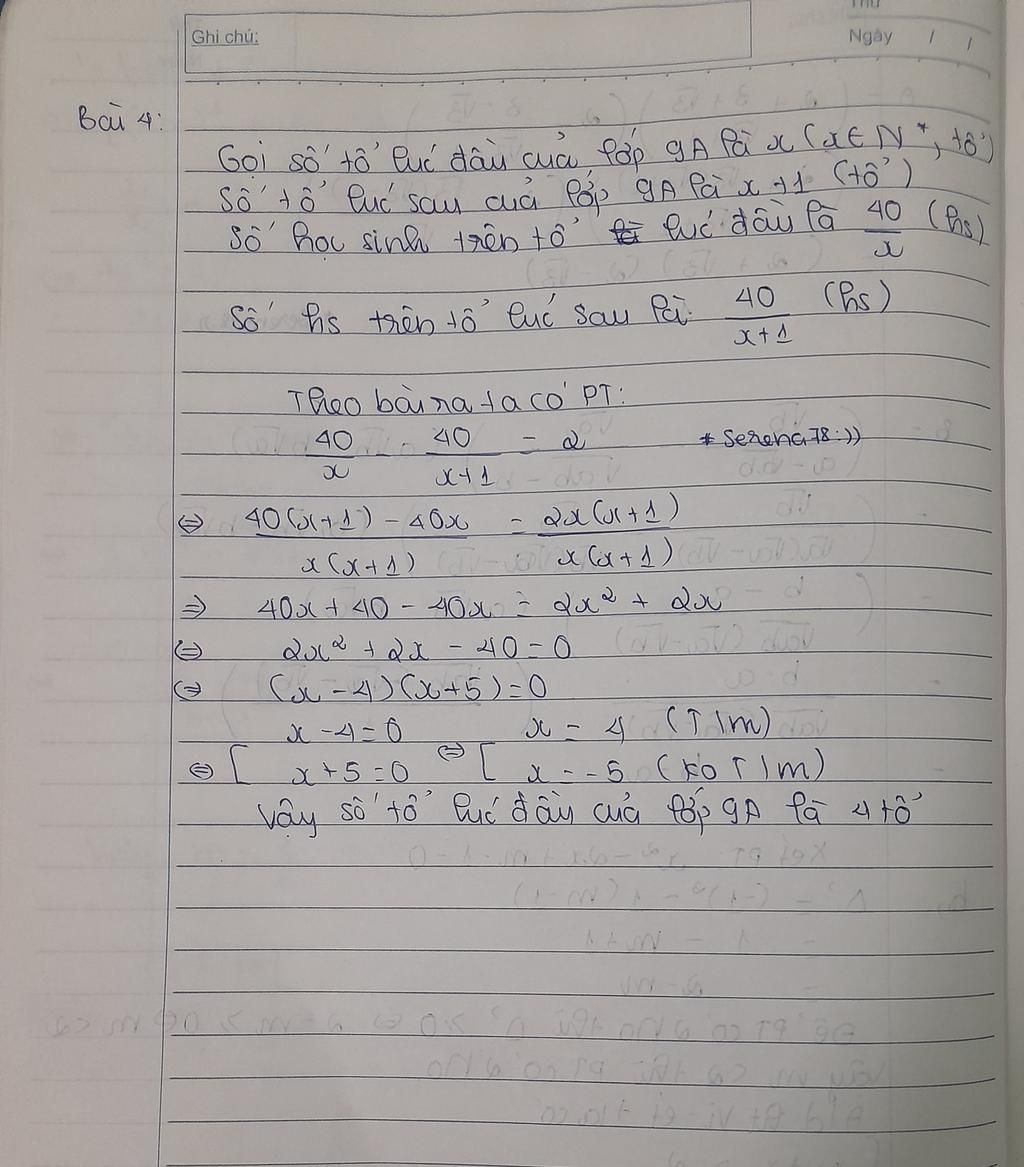 Thứ
Ghi chú:
Ngày / /
Bài 4:
Gọi số tổ lúc đầu của lớp 9A là x (x ∈ N*, tổ)
Số tổ lúc sau của lớp 9A là x + 1 (tổ)
Số học sinh trên tổ lúc đầu là 40/x (hs)
Số hs trên tổ lúc sau là: 40/(x+1) (hs)
Theo bài ra ta có PT:
40/x - 40/(x+1) = 2 * Serena78:))
⇔ (40(x+1) - 40x)/(x(x+1)) = (2x(x+1))/(x(x+1))
⇒ 40x + 40 - 40x = 2x² + 2x
⇔ 2x² + 2x - 40 = 0
⇔ (x - 4)(x + 5) = 0
x - 4 = 0 x = 4 (T/m)
⇔ [ x + 5 = 0 ⇔ [ x = -5 (ko T/m)
Vậy số tổ lúc đầu của lớp 9A là 4 tổ